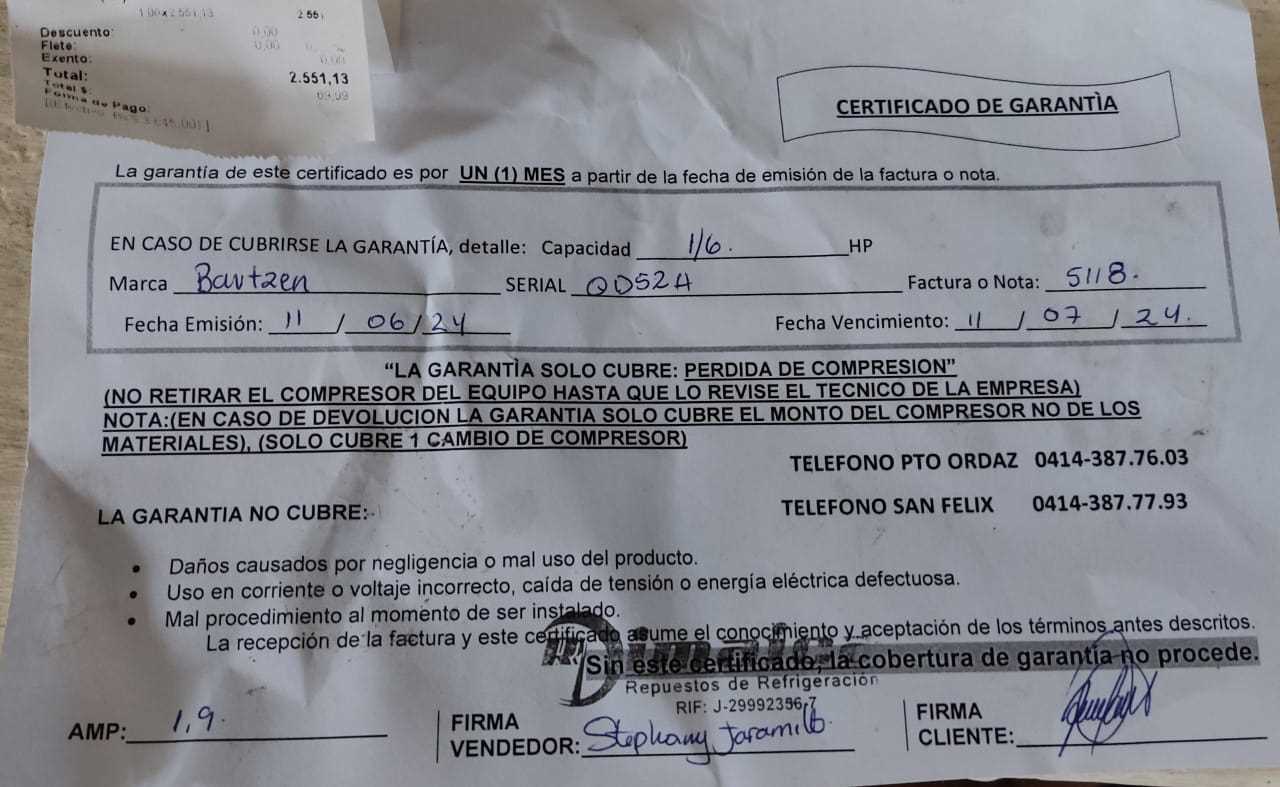 1.00x2.551,13 2.551
Descuento: 0,00
Flete: 0,00
Exento: 0,00
Total: 2.551,13
Total $: 69,99
Forma de Pago:
CERTIFICADO DE GARANTÌA
La garantía de este certificado es por UN (1) MES a partir de la fecha de emisión de la factura o nota.
EN CASO DE CUBRIRSE LA GARANTÍA, detalle: Capacidad 1/6. HP
Marca Bautzen SERIAL QD52H Factura o Nota: 5118.
Fecha Emisión: 11 / 06 / 24 Fecha Vencimiento: 11 / 07 / 24.
“LA GARANTÌA SOLO CUBRE: PERDIDA DE COMPRESION”
(NO RETIRAR EL COMPRESOR DEL EQUIPO HASTA QUE LO REVISE EL TECNICO DE LA EMPRESA)
NOTA:(EN CASO DE DEVOLUCION LA GARANTIA SOLO CUBRE EL MONTO DEL COMPRESOR NO DE LOS
MATERIALES), (SOLO CUBRE 1 CAMBIO DE COMPRESOR)
TELEFONO PTO ORDAZ 0414-387.76.03
TELEFONO SAN FELIX 0414-387.77.93
LA GARANTIA NO CUBRE:
• Daños causados por negligencia o mal uso del producto.
• Uso en corriente o voltaje incorrecto, caída de tensión o energía eléctrica defectuosa.
• Mal procedimiento al momento de ser instalado.
La recepción de la factura y este certificado asume el conocimiento y aceptación de los términos antes descritos.
Sin este certificado, la cobertura de garantía no procede.
Repuestos de Refrigeración
RIF: J-29992356-7
AMP: 1,9.
FIRMA
VENDEDOR: Stephany Jaramillo
FIRMA
CLIENTE: